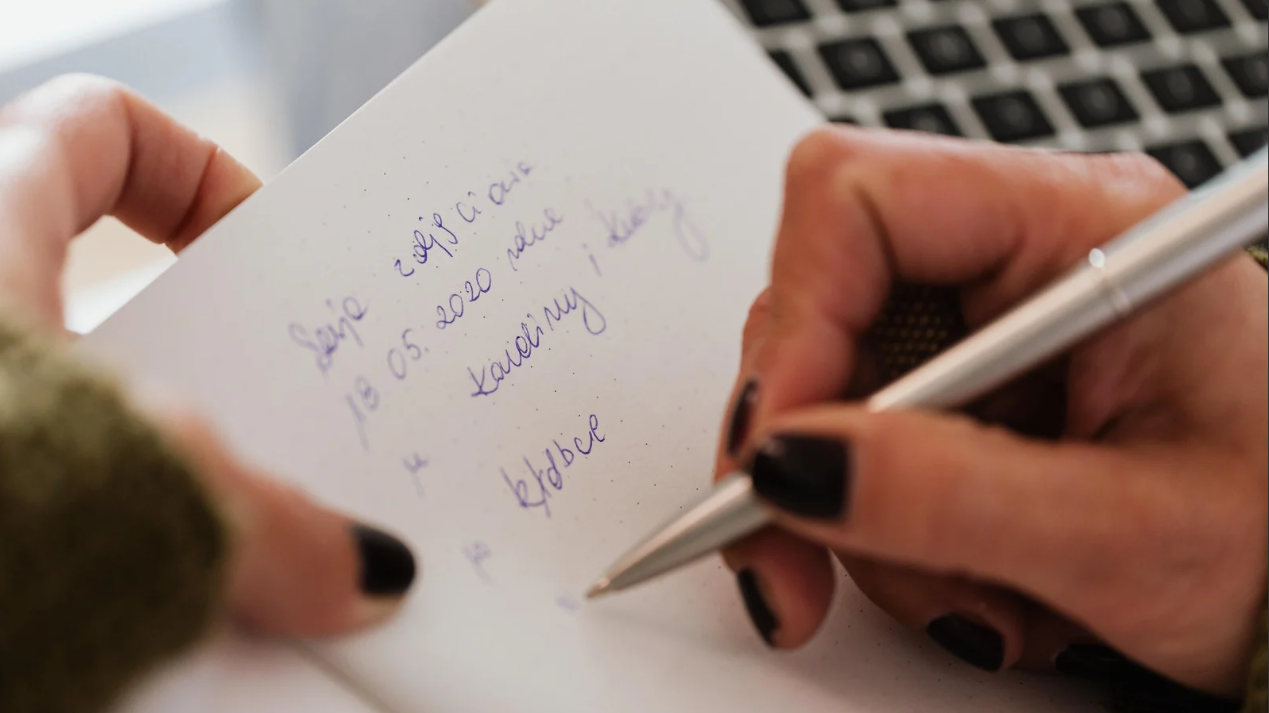 Sesja zdjęciowa
18 05. 2020 roku
u Karoliny i Kuby
u